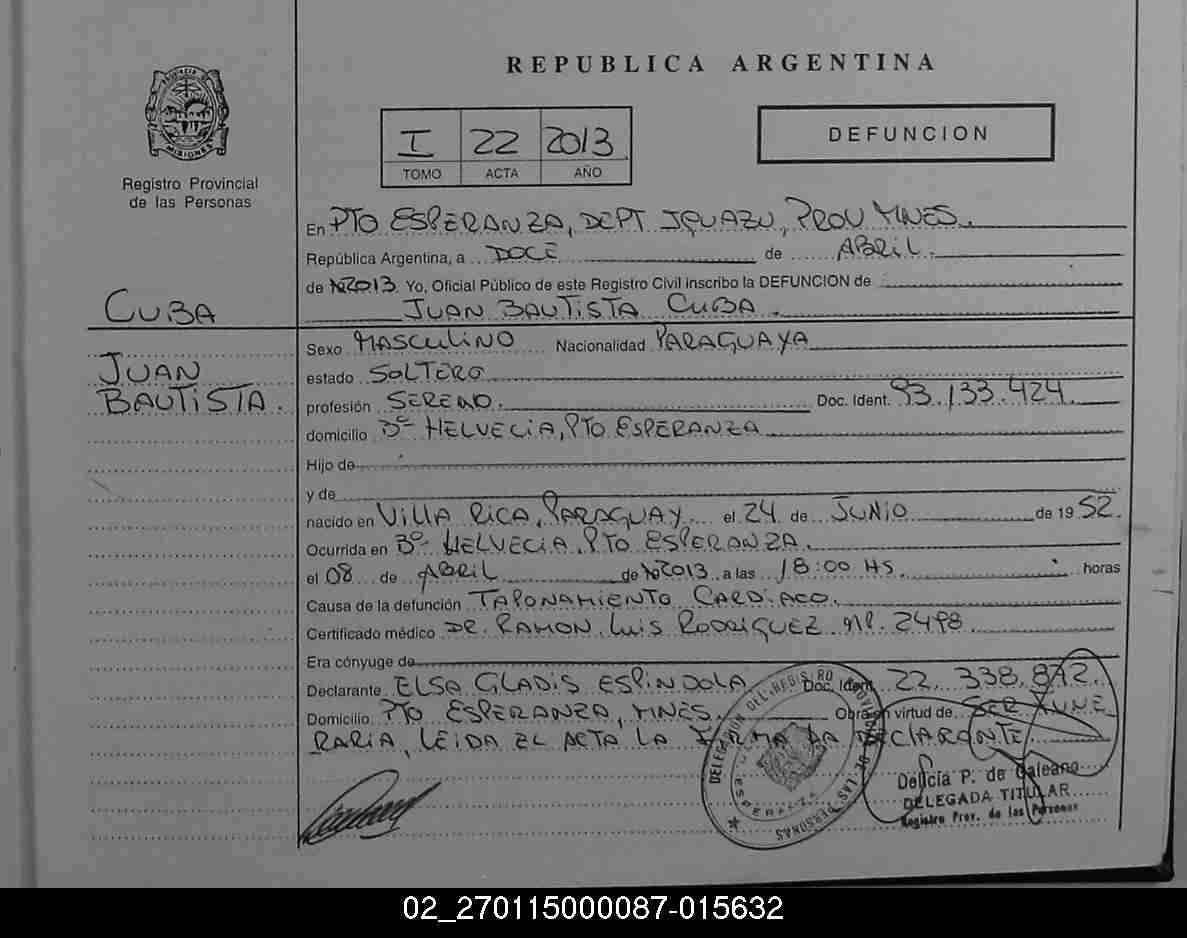 REPUBLICA ARGENTINA
PROVINCIA DE MISIONES
Registro Provincial
de las Personas
I 22 2013
TOMO ACTA AÑO
DEFUNCION
En PTO ESPERANZA, DEPT IGUAZU, PROV MNES.
República Argentina, a DOCE de ABRIL
de 2013 Yo, Oficial Público de este Registro Civil inscribo la DEFUNCION de
CUBA
JUAN BAUTISTA CUBA
JUAN
BAUTISTA.
Sexo MASCULINO Nacionalidad PARAGUAYA
estado SOLTERO
profesión SERENO. Doc. Ident. 93.133.424
domicilio Bº HELVECIA, PTO ESPERANZA
Hijo de
y de
nacido en VILLA RICA, PARAGUAY el 24 de JUNIO de 1952.
Ocurrida en Bº HELVECIA, PTO ESPERANZA.
el 08 de ABRIL de 2013 a las 18:00 HS. horas
Causa de la defunción TAPONAMIENTO CARDIACO.
Certificado médico DR. RAMON LUIS RODRIGUEZ MP. 2498
Era cónyuge de
Declarante ELSA GLADIS ESPINDOLA Doc. Ident. 22.338.872.
Domicilio PTO ESPERANZA, MNES. Obra en virtud de SER FUNE
RARIA, LEIDA EL ACTA LA FIRMA LA DECLARANTE
DELEGACION DEL REGISTRO PROVINCIAL DE LAS PERSONAS
ESPERANZA
Delicia P. de Galeano
DELEGADA TITULAR
Registro Prov. de las Personas
02_270115000087-015632